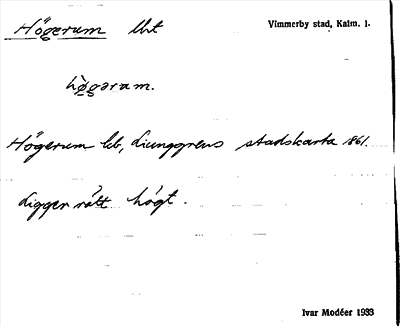 Högerum lht Vimmerby stad, Kalm. l.
hö̀gəram.
Högerum lht, Ljunggrens stadskarta 1861.
Ligger rätt högt.
Ivar Modéer 1933